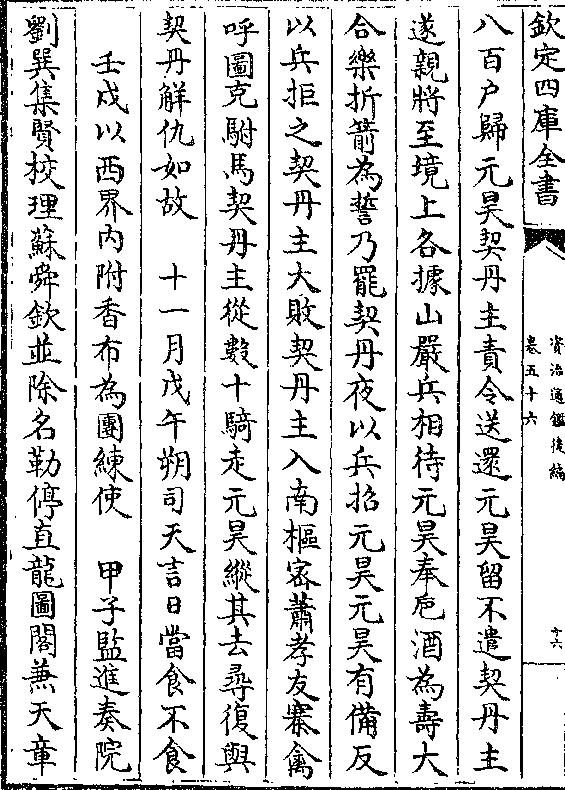 欽定四庫全書
資治通鑑後編
卷五十六
十六
八百户歸元昊契丹主責令送還元昊留不遣契丹主
遂親將至境上各據山嚴兵相待元昊奉巵酒為壽大
合樂折箭為誓乃罷契丹夜以兵招元昊元昊有備反
以兵拒之契丹主大敗契丹主入南樞宻蕭孝友寨禽
呼圖克駙馬契丹主從數十騎走元昊縱其去尋復與
契丹解仇如故 十一月戊午朔司天言日當食不食
壬戌以西界内附香布為團練使 甲子監進奏院
劉巽集賢校理蘇舜欽並除名勒停直龍圖閣兼天章